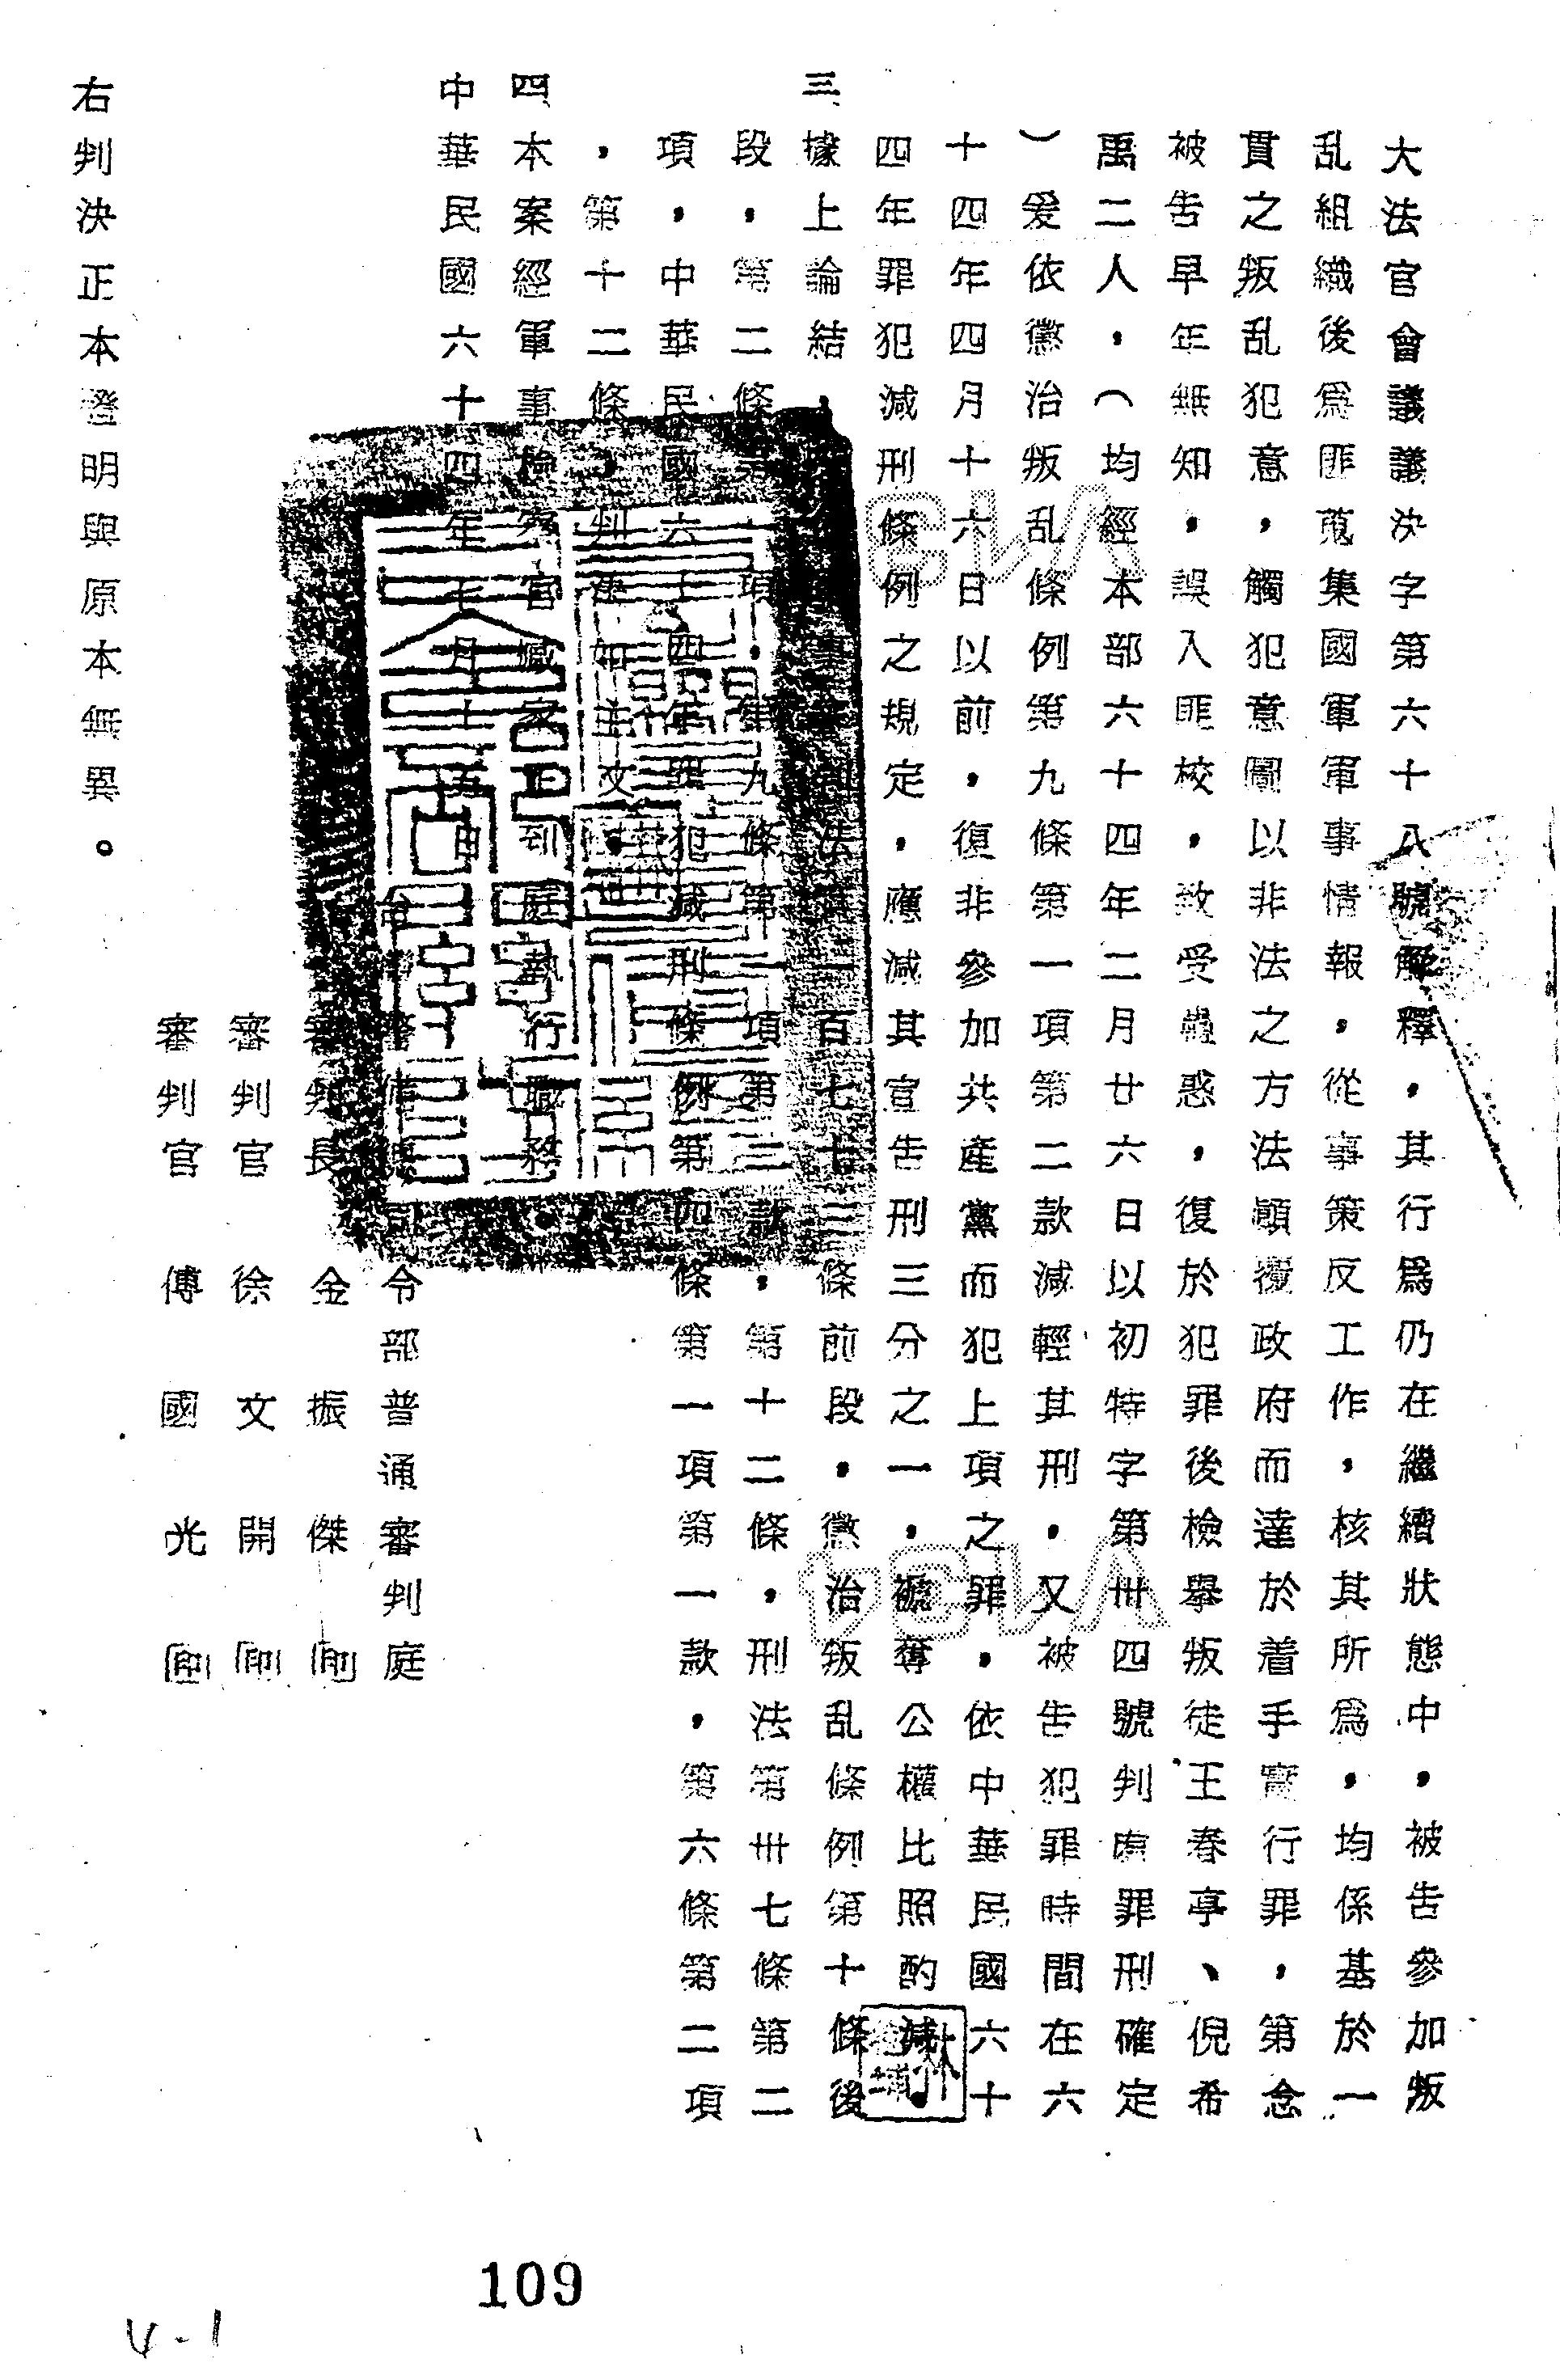 大法官會議議決字第六十八號解釋，其行爲仍在繼續狀態中，被告參加叛
乱組織後爲匪蒐集國軍軍事情報，從事策反工作，核其所爲，均係基於一
貫之叛乱犯意，觸犯意圖以非法之方法顚覆政府而達於着手實行罪，第念
被告早年無知，誤入匪校，致受蠱惑，復於犯罪後檢舉叛徒王春亭、倪希
禹二人，（均經本部六十四年二月廿六日以初特字第卅四號判處罪刑確定
）爰依懲治叛乱條例第九條第一項第二款減輕其刑，又被告犯罪時間在六
十四年四月十六日以前，復非參加共產黨而犯上項之罪，依中華民國六十
四年罪犯減刑條例之規定，應減其宣告刑三分之一，褫奪公權比照酌減。
三據上論結 法第一百七十三條前段，懲治叛乱條例第十條後
段，第二條第一項，第九條第一項第二款，第十二條，刑法第卅七條第二
項，中華民國六十四年罪犯減刑條例第四條第一項第一款，第六條第二項
，第十二條，判決如主文。
四本案經軍事檢察官臧家正到庭執行職務。
中華民國六十四年七月十五日
台灣警備總司令部普通審判庭
審判長 金振傑 印
審判官 徐文開 印
審判官 傅國光 印
右判決正本證明與原本無異。
109
4-1